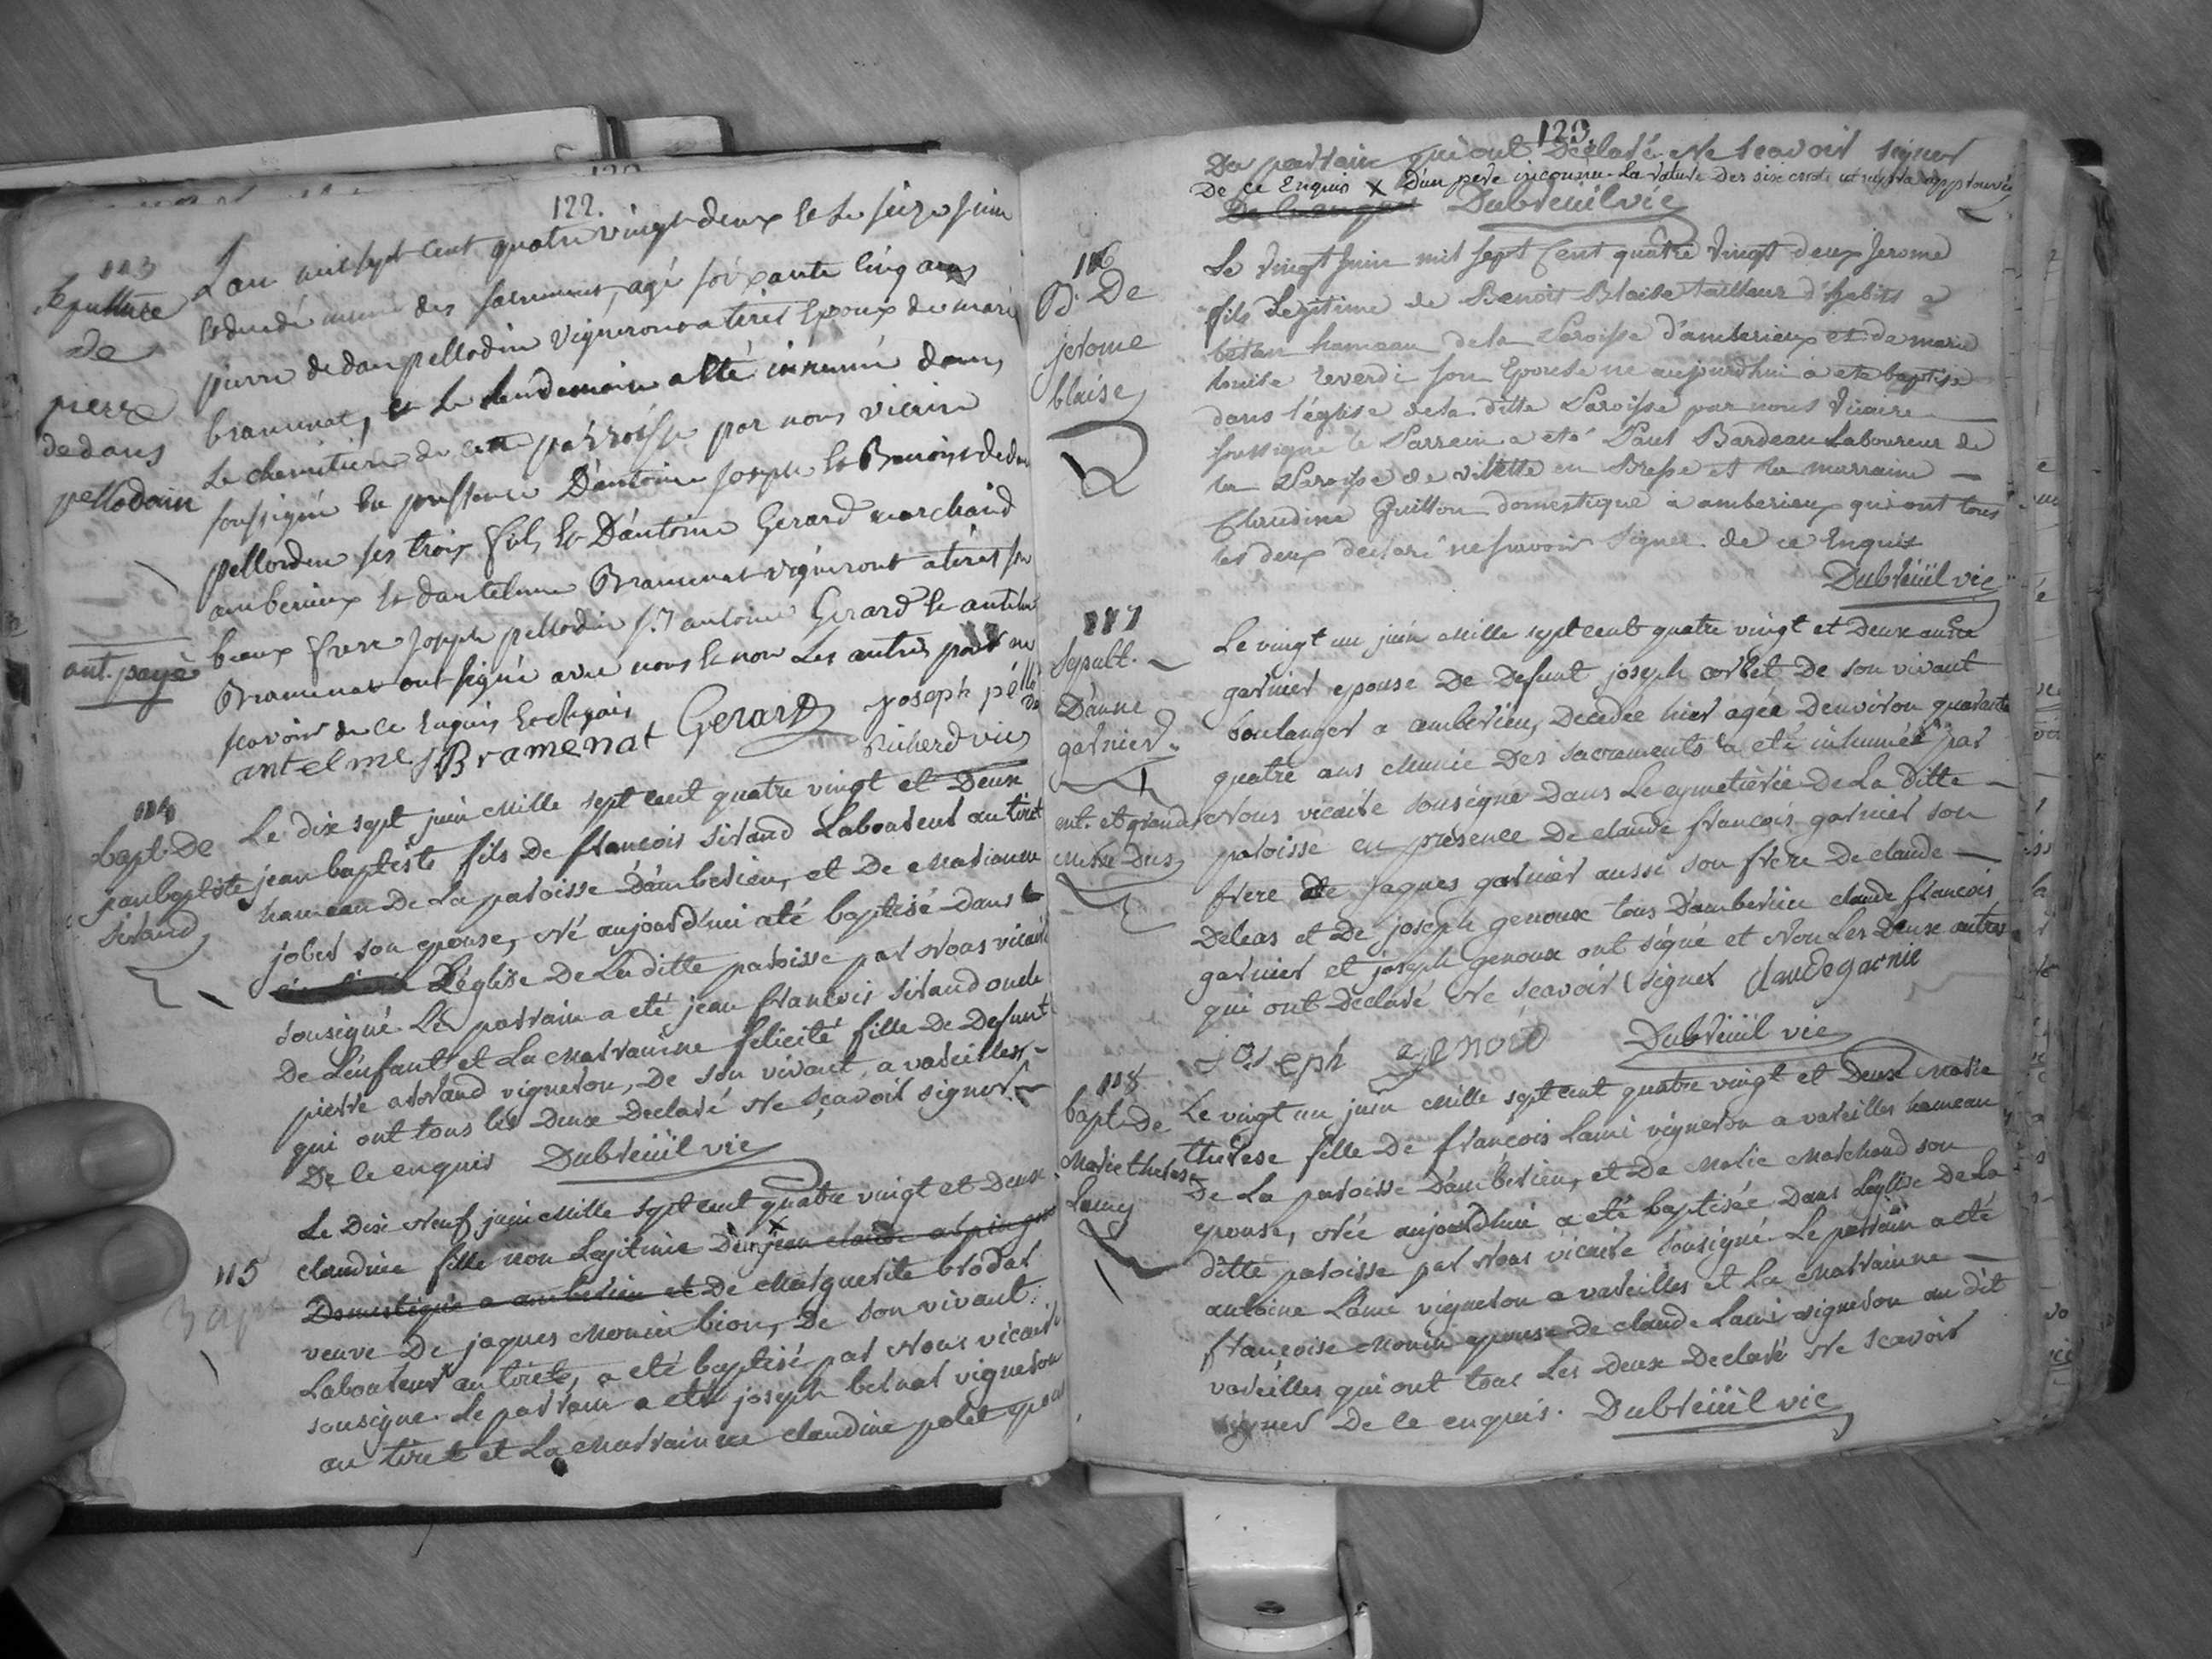 122.
113
Sepulture
de
pierre
dedans
pellodain
ant. payè
L'an mil sept cent quatre vingt deux et le seize juin
est decedé muni des sacremens, agé soixante cinq ans
pierre dedan pellodin vigneron a tiret Epoux de marie
bramenat, et le lendemain a été inhumé dans
le cheimetiere de cette parroisse par nous vicaire
soussigné en presence D'antoine Joseph et Benoist dedan
pellordin ses trois fils et D'antoine Gerard marchand
amberieux et d'antelme Bramenat vigneront a tiret son
beaux frere Joseph pellodin antoine Gerard et antelme
Bramenat ont signé avec nous et non les autres pour ne
scavoir de ce enquis
antelme Bramenat Gerard joseph pello
Richerd vic
114
bapt. De
jean baptiste
sirand
Le dix sept juin mille sept cent quatre vingt et Deux
jean baptiste fils De francois sirand Laboureur au tiret
hameau De La paroisse D'amberieu, et De marianne
jober son epouse, né aujourd'hui a té baptisé dans
L'église De La ditte paroisse par nous vicaire
sousigné. Le parrain a eté jean francois sirand oncle
De L'enfant et La marrainne felicité fille De Defunt
pierre arrand vigneron, De son vivant, a vareilles
qui ont tous les Deux Declaré ne sçavoir signer
De ce enquis Dubreüil vic
115
Bapt
Le Dix neuf juin mille sept cent quatre vingt et Deux
claudine fille non Legitime D'un jean claude
Domestique a amberieu et De marguerite brodar
veuve De jaques monin bion, De son vivant
Laboureur au tiret, a eté baptisé par nous vicaire
sousigné. Le parrain a eté joseph bernar vigneron
au tiret et La marrainne claudine polet epouse
123.
Du parrain qui ont Declaré ne scavoir signer
De ce Enquis X D'un pere inconnu. La rature Des six mots
Dubreüil vic
116
B. De
jerome
blaise
Le vingt juin mil sept Cent quatre vingt deux Jerome
fils Legitime de Benoit Blaise tailleur d'habits a
bettan hameau de la Paroisse d'amberieux et de marie
Louise reverdi son Epouse ne aujourdhui a ete baptise
dans l'église de la ditte Paroisse par nous vicaire
soussigné le Parrein a eté Paul Bardeau Laboureur de
la Paroisse de villette en Bresse et la marraine
Claudine Guitton domestique a amberieux qui ont tous
les deux declaré ne scavoir signer de ce Enquis
Dubreüil vic
117
Sepult.
D'anne
garnier
ent. et grande
messe Dus
Le vingt un juin mille sept cent quatre vingt et Deux anne
garnier epouse De Defunt joseph corbet De son vivant
boulanger a amberieu, Decedée hier agée D'environ quarante
quatre ans munie Des sacrements a eté inhumée par
nous vicaire sousigné Dans Le cymetierie De La Ditte
paroisse en presence De claude francois garnier son
frere De jaques garnier aussi son frere De claude
Deleas et De joseph genoux tous D'amberieu claude francois
garnier et joseph genoux ont signé et non Les Deux autres
qui ont Declaré ne scavoir signer claudegarnie
joseph genoud Dubreüil vic
118
bapt. de
marie therese
Lamy
Le vingt un juin mille sept cent quatre vingt et Deux marie
therese fille De françois Lami vigneron a vareilles hameau
De La paroisse D'amberieu, et De marie marchand son
epouse, née aujourd'hui a eté baptisée Dans L'eglise De La
ditte paroisse par nous vicaire sousigné. Le parrain a eté
antoine Lami vigneron a vareilles et La marrainne
françoise monin epouse De claude Lami vigneron au dit
vareilles qui ont tous Les Deux Declaré ne scavoir
signer De ce enquis. Dubreüil vic